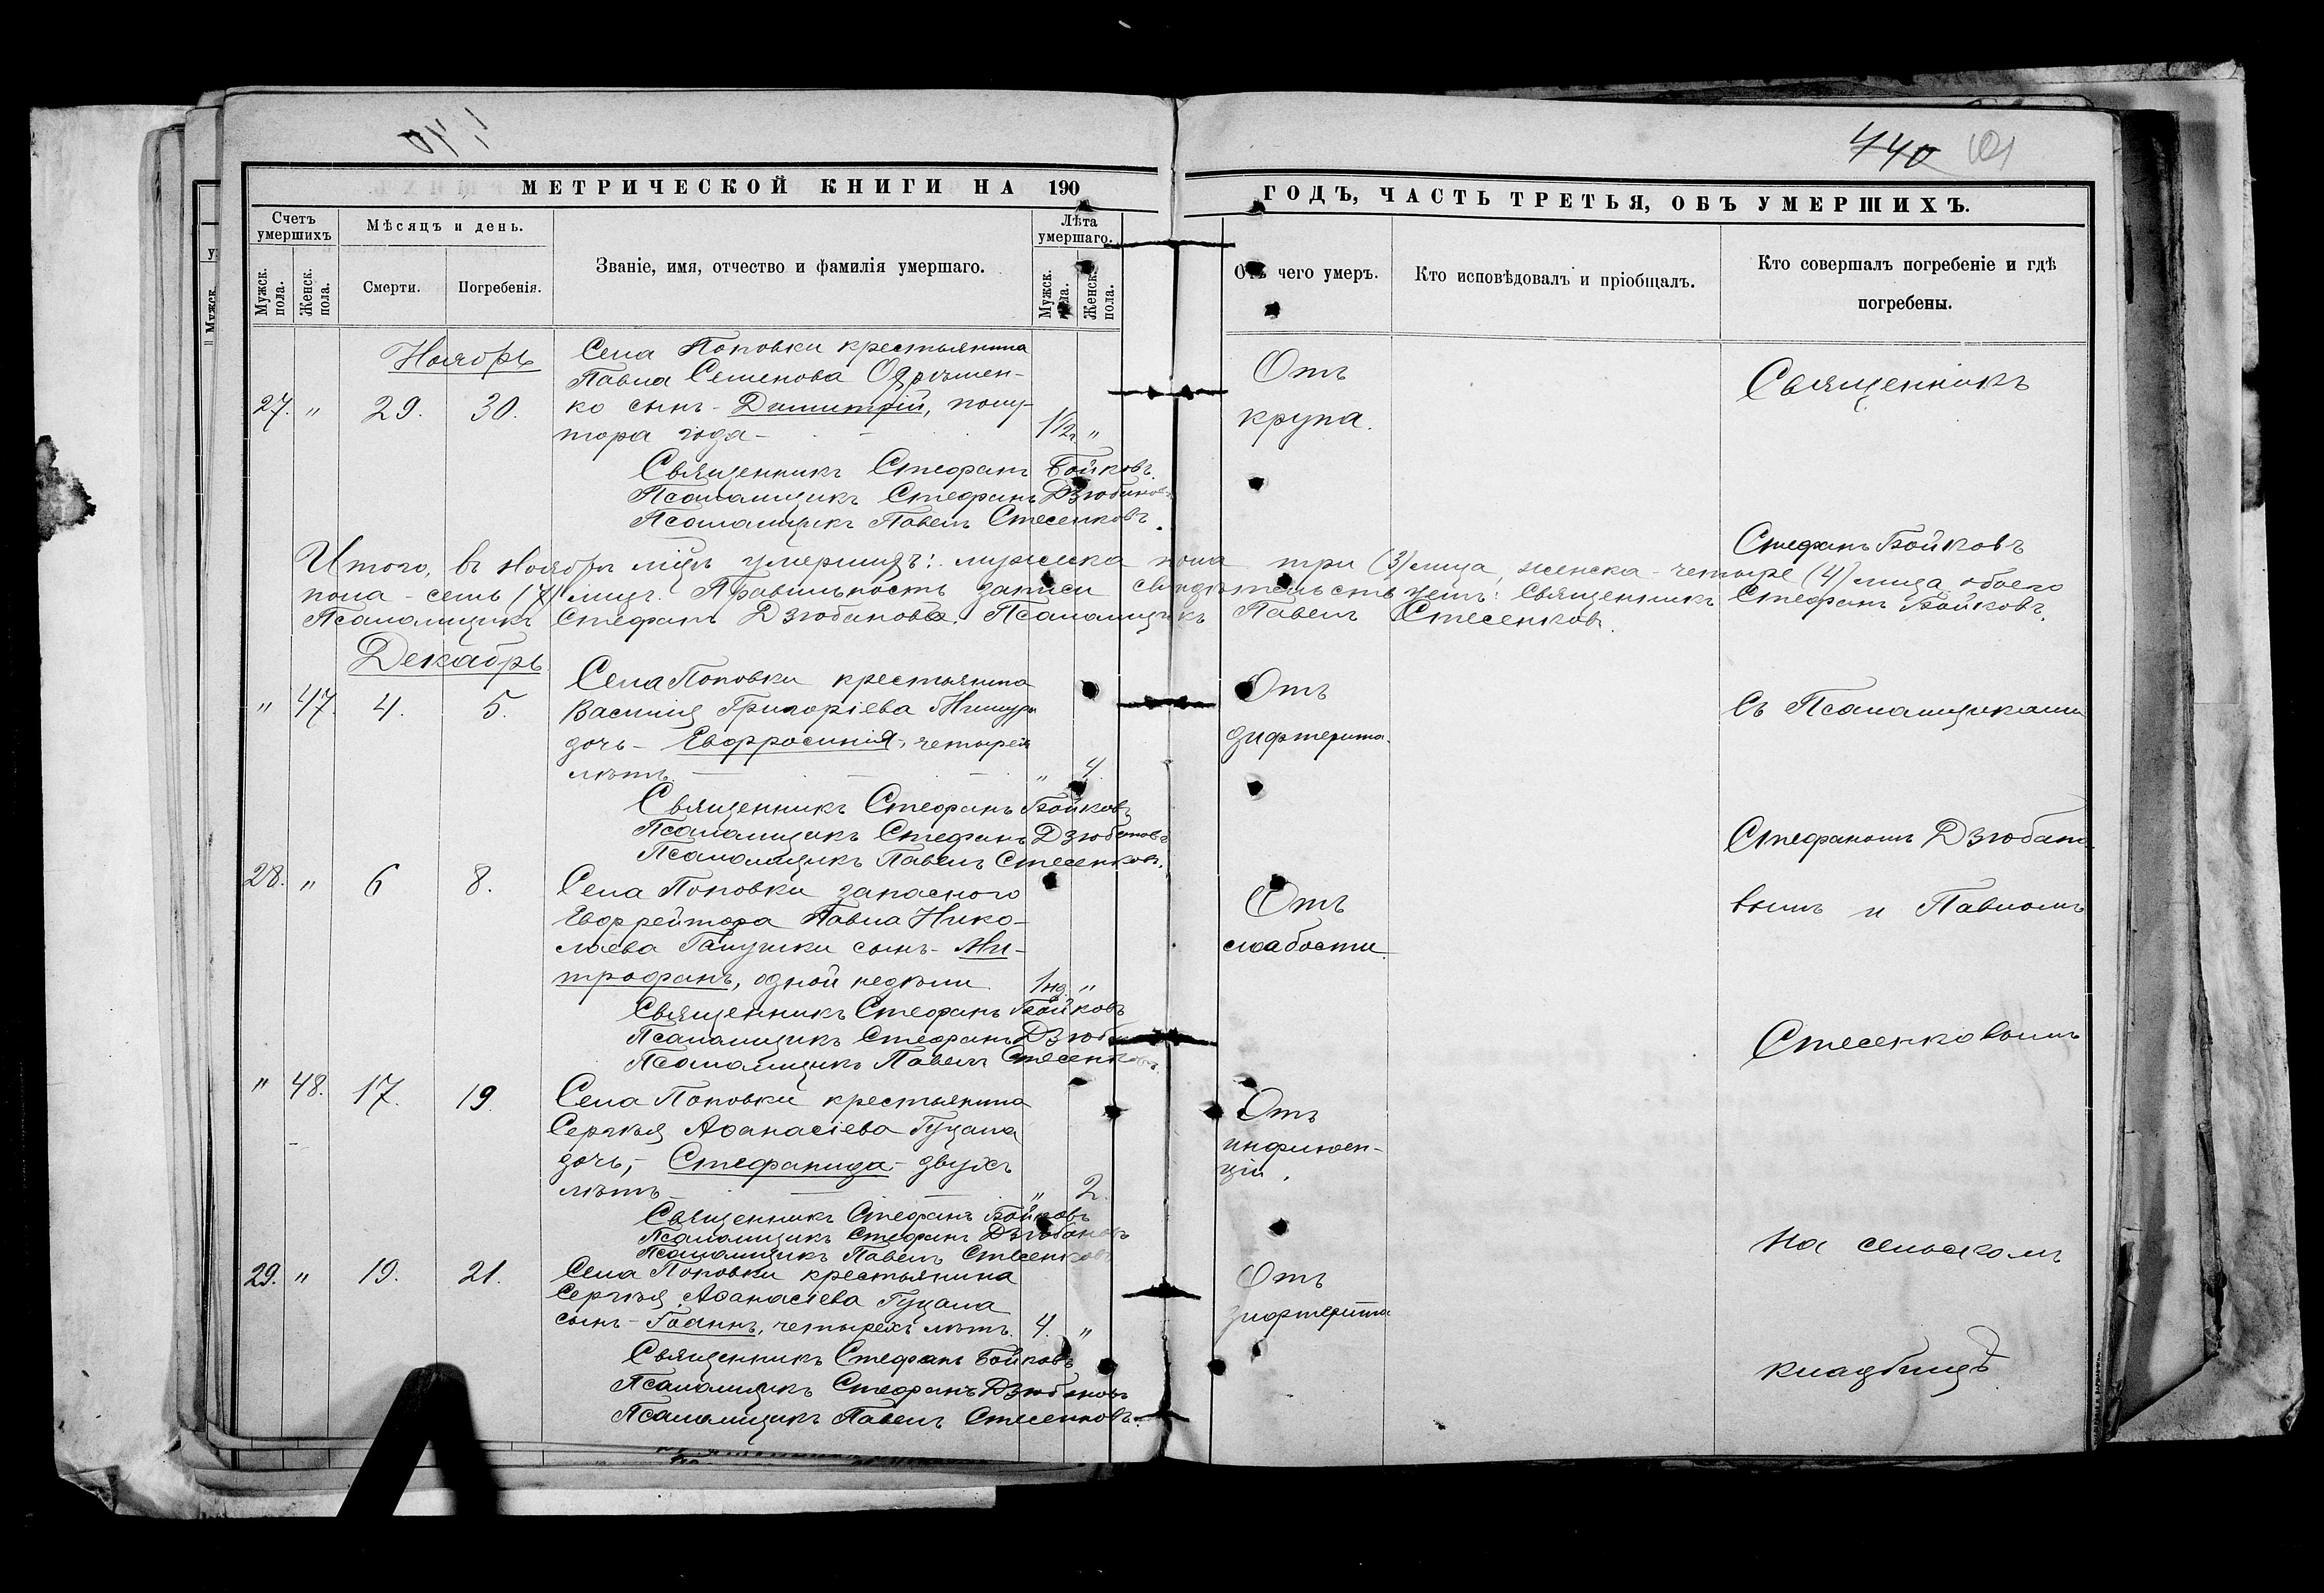 440
МЕТРИЧЕСКОЙ КНИГИ НА 190
ГОДЪ, ЧАСТЬ ТРЕТЬЯ, ОБЪ УМЕРШИХЪ.
Счетъ умершихъ
Мѣсяцъ и день.
Званіе, имя, отчество и фамилія умершаго.
Лѣта умершаго.
Мужск. пола.
Женск. пола.
Смерти.
Погребенія.
Мужск. пола.
Женск. пола.
Отъ чего умеръ.
Кто исповѣдовалъ и пріобщалъ.
Кто совершалъ погребеніе и гдѣ
погребены.
Ноябрь
Села Поповки крестьянина
Павла Семенова
27. " 29. 30. ко сынъ - Димитрій, полу-
тора года - 1 1/2 г. "
Отъ
крупа.
Священникъ
Священникъ Стефанъ Бойковъ.
Псаломщикъ Стефанъ Дзюбановъ
Псаломщикъ Павелъ Стесенковъ.
Стефанъ Бойковъ
Итого, въ Ноябрѣ м̃цѣ умершихъ: мужеска пола три (3) лица, женска - четыре (4) лица, обоего
пола - семь (7) лицъ. Правильность записи свидѣтельствуемъ: Священникъ Стефанъ Бойковъ.
Псаломщикъ Стефанъ Дзюбановъ. Псаломщикъ Павелъ Стесенковъ.
Декабрь
Села Поповки крестьянина
" 47. 4. 5. Василія Григоріева
дочь - Евфросинія, четырехъ
лѣтъ. " 4.
Отъ
дифтерита.
съ Псаломщиками
Священникъ Стефанъ Бойковъ
Псаломщикъ Стефанъ Дзюбановъ
Псаломщикъ Павелъ Стесенковъ.
Стефаномъ Дзюбано-
28. " 6 8. Села Поповки запаснаго
Ефрейтора Павла Нико-
лаева Галушки сынъ - Ми-
трофанъ, одной недѣли. 1 нд. "
Отъ
слабости.
вымъ и Павломъ
Священникъ Стефанъ Бойковъ
Псаломщикъ Стефанъ Дзюбановъ
Псаломщикъ Павелъ Стесенковъ.
Стесенковымъ
" 48. 17. 19. Села Поповки крестьянина
Сергѣя Аѳанасіева Гуцала
дочь, - Стефанида - двухъ
лѣтъ " 2.
Отъ
инфлюен-
ціи.
Священникъ Стефанъ Бойковъ
Псаломщикъ Стефанъ Дзюбановъ
Псаломщикъ Павелъ Стесенковъ
на сельскомъ
29. " 19. 21. Села Поповки крестьянина
Сергѣя Аѳанасіева Гуцала
сынъ - Іоаннъ, четырехъ лѣтъ. 4. "
Отъ
дифтерита
Священникъ Стефанъ Бойковъ
Псаломщикъ Стефанъ Дзюбановъ
Псаломщикъ Павелъ Стесенковъ.
кладбищѣ